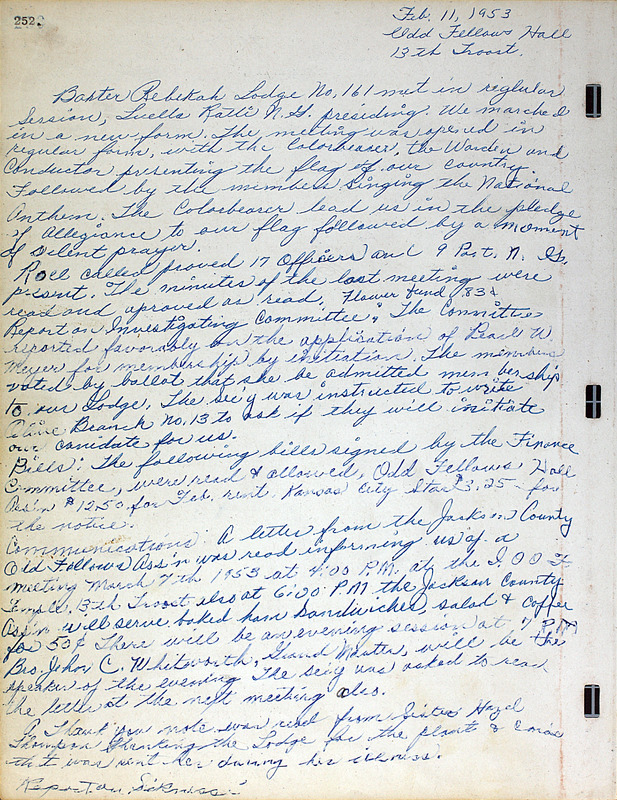 252
Feb. 11, 1953
Odd Fellows Hall
13th Troost.
Baxter Rebekah Lodge No. 161 met in reglular
Session, Luella Ratti N.G. presiding. We marched
in a new form. The meeting was opened in
regular form, with the Colorbearer, the Warden and
Conductor presenting the flag of our country
Followed by the members singing the National
Anthem. The Colorbearer lead us in the pledge
of Allegiance to our flag followed by a moment
of Silent prayer.
Roll called proved 17 Officers and 9 Past. N. Gs.
present. The minutes of the last meeting were
read and aproved as read. Flower fund .83¢
Report on Investigating Committee: The Committee
reported favorably on the application of Pearl W
Meyer for membership by initiation. The members
voted by ballot that she be admitted membership
to our Lodge. The sec'y was instructed to write
Olive Branch No. 13 to ask if they will initiate
our canidate for us.
Bills: The following bills signed by the Finance
Committee, were read & allowed, Odd Fellows Hall
Ass'n $12.50 for Feb. rent. Kansas City Star $3.25 for
the notice.
Communications: A letter from the Jackson County
Odd Fellows Ass'n was read informing us of a
meeting March 7th 1953 at 4:00 P.M. at the I.O.O.F.
Temple, 13th Troost also at 6:00 P.M the Jackson County
Ass'n will serve baked ham sandwiches, salad & coffee
for 50¢ There will be an evening session at 7 P.M
Bro. John C. Whitworth, Grand Master, will be the
speaker of the evening The sec'y was asked to read
the letter at the next meeting also.
A Thank you note was read from Sister Hazel
Thompson thanking the Lodge for the plant &
that was sent her during her illness.
Report on Sickness:-